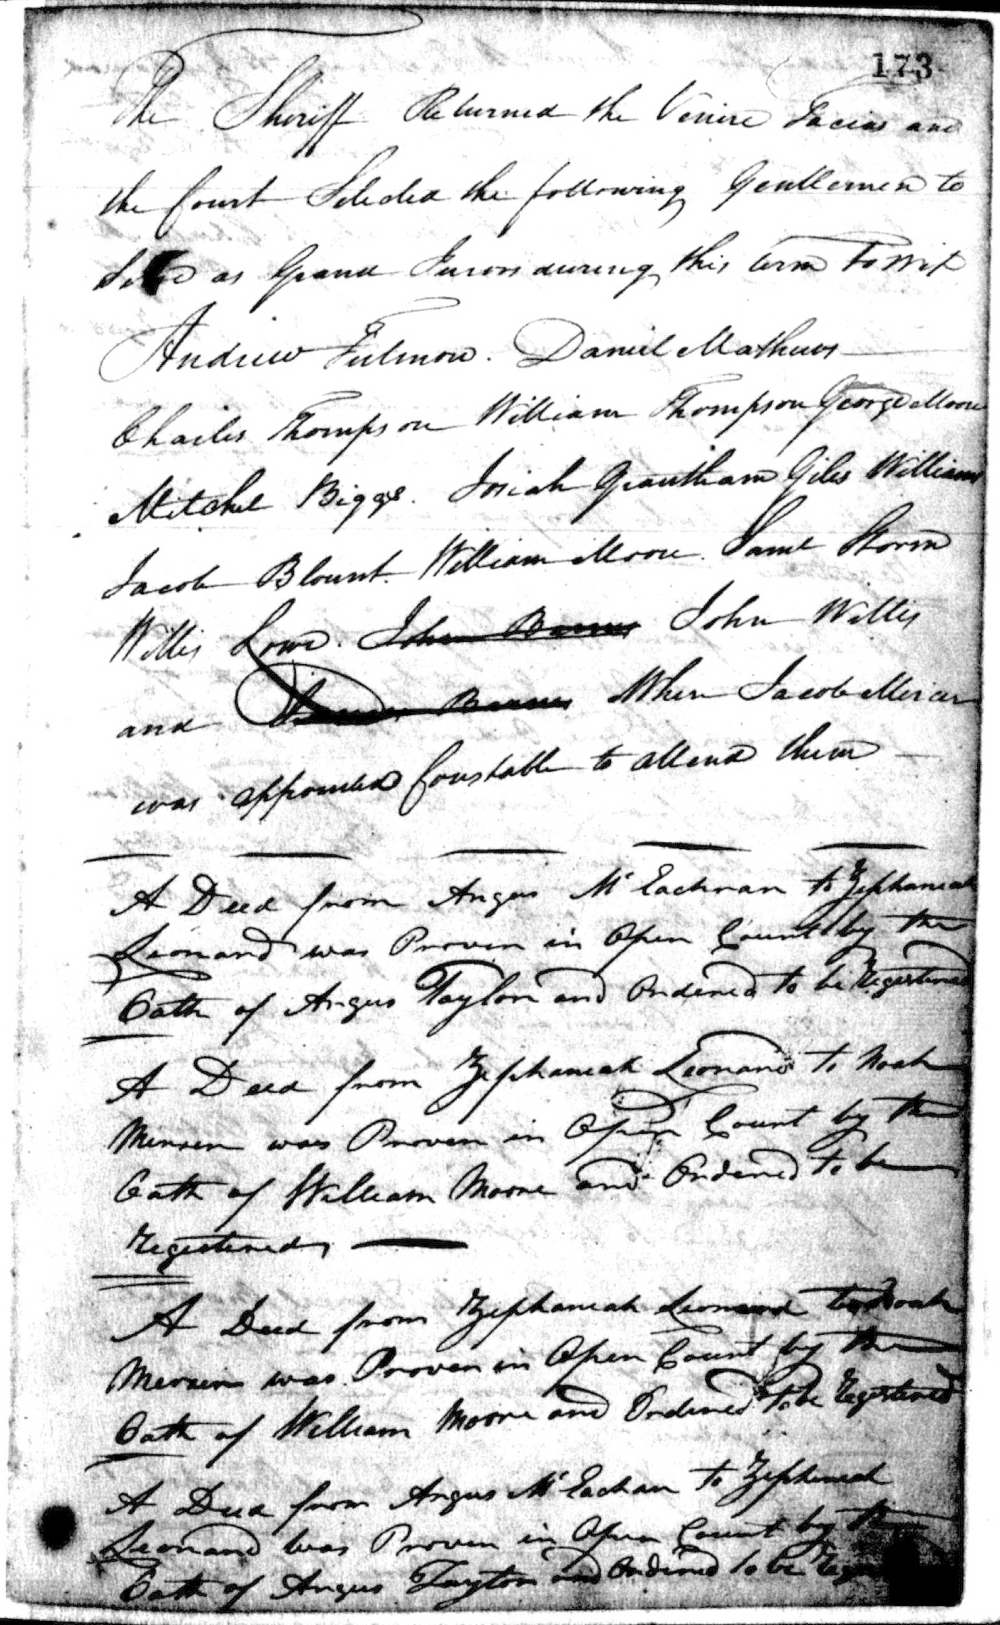 173
The Sheriff Returned the Venire Facias and
the Court Selected the following Gentlemen to
as Grand Jurors during this term to wit
Andrew Fulmore. Daniel Mathews
Charles Thompson William Thompson George Moore
Mitchel Biggs. Josiah Grantham Giles Williams
Jacob Blount. William Moore. Saml Storm
Willis Lowe. John Barnes John Willis
and Barnes When Jacob Mercer
was appointed Constable to attend them
A Deed from Angus McEachran to Zephaniah
Leonard was Proven in Open Court by the
Oath of Angus Taylor and Ordered to be Registered
A Deed from Zephaniah Leonard to Noah
Mercer was Proven in Open Court by the
Oath of William Moore and Ordered to be
Registered
A Deed from Zephaniah Leonard to Noah
Mercer was Proven in Open Court by the
Oath of William Moore and Ordered to be Registered
A Deed from Angus McEachan to Zephaniah
Leonard was Proven in Open Court by the
Oath of Angus Taylor and Ordered to be